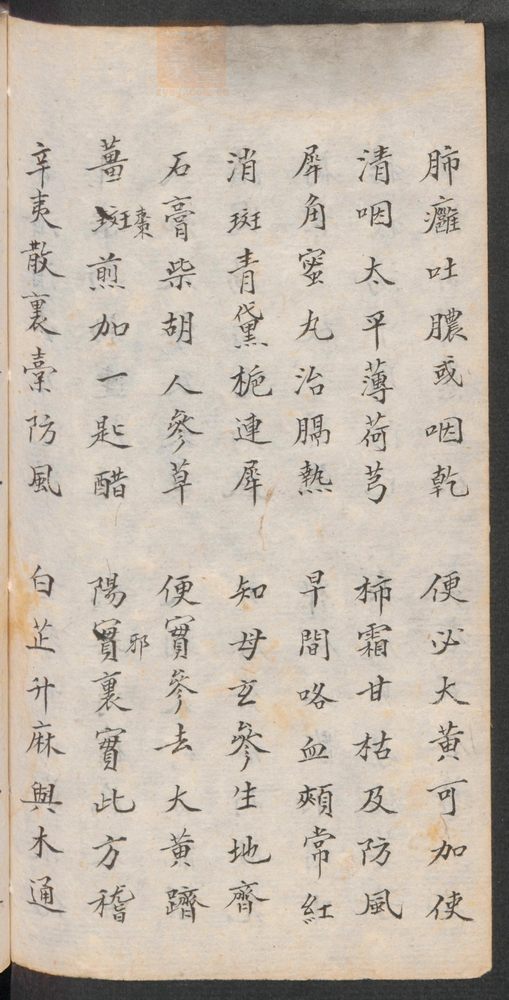 肺癰吐膿或咽乾 便必大黃可加使
清咽太平薄荷芎 柿霜甘枯及防風
犀角蜜丸治膈熱 早間咯血頰常紅
消斑青黛梔連犀 知母玄參生地齊
石膏柴胡人參草 便實參去大黃躋
薑斑棗煎加一匙醋 陽實邪裏實此方稽
辛夷散裏槀防風 白芷升麻與木通